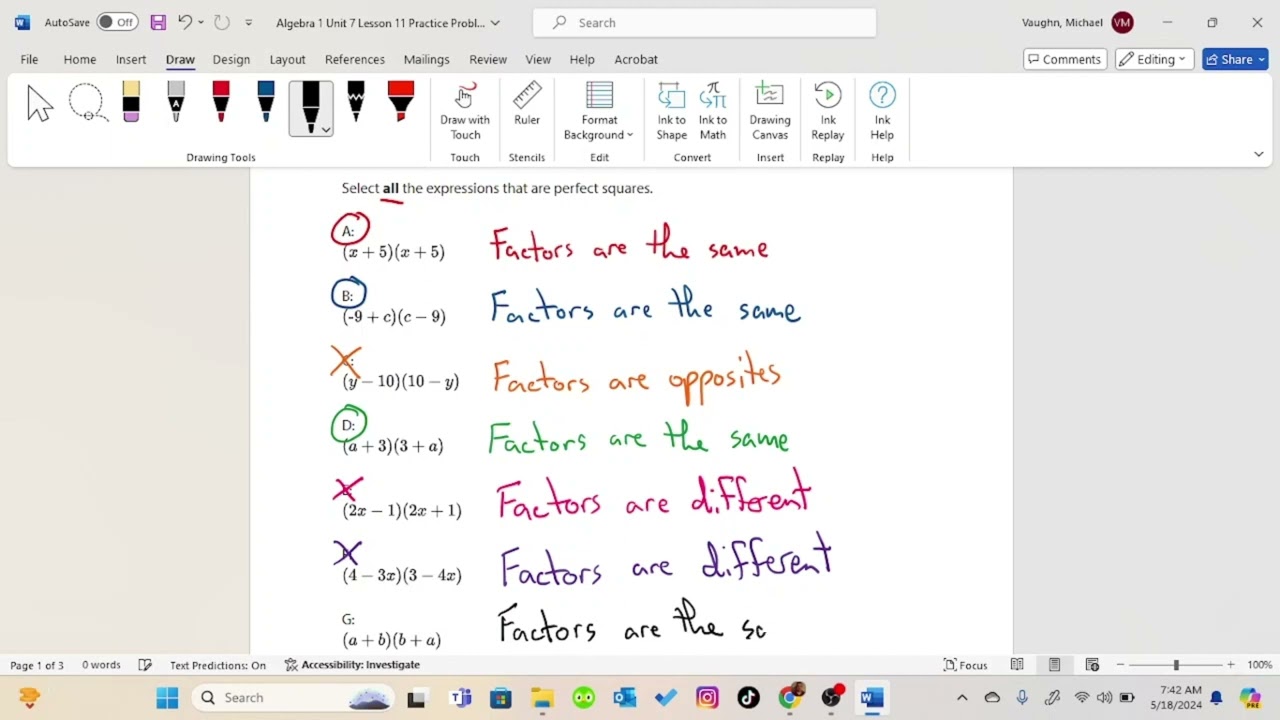 AutoSave Off Algebra 1 Unit 7 Lesson 11 Practice Probl... Search Vaughn, Michael VM
File Home Insert Draw Design Layout References Mailings Review View Help Acrobat Comments Editing Share
A
Draw with Touch Ruler Format Background Ink to Shape Ink to Math Drawing Canvas Ink Replay Ink Help
Drawing Tools Touch Stencils Edit Convert Insert Replay Help
Select all the expressions that are perfect squares.
A:
(x + 5)(x + 5) Factors are the same
B:
(-9 + c)(c − 9) Factors are the same
(y − 10)(10 − y) Factors are opposites
D:
(a + 3)(3 + a) Factors are the same
(2x − 1)(2x + 1) Factors are different
(4 − 3x)(3 − 4x) Factors are different
G:
(a + b)(b + a) Factors are the sa
Page 1 of 3 0 words Text Predictions: On Accessibility: Investigate Focus 100%
Search 7:42 AM
5/18/2024 PRE